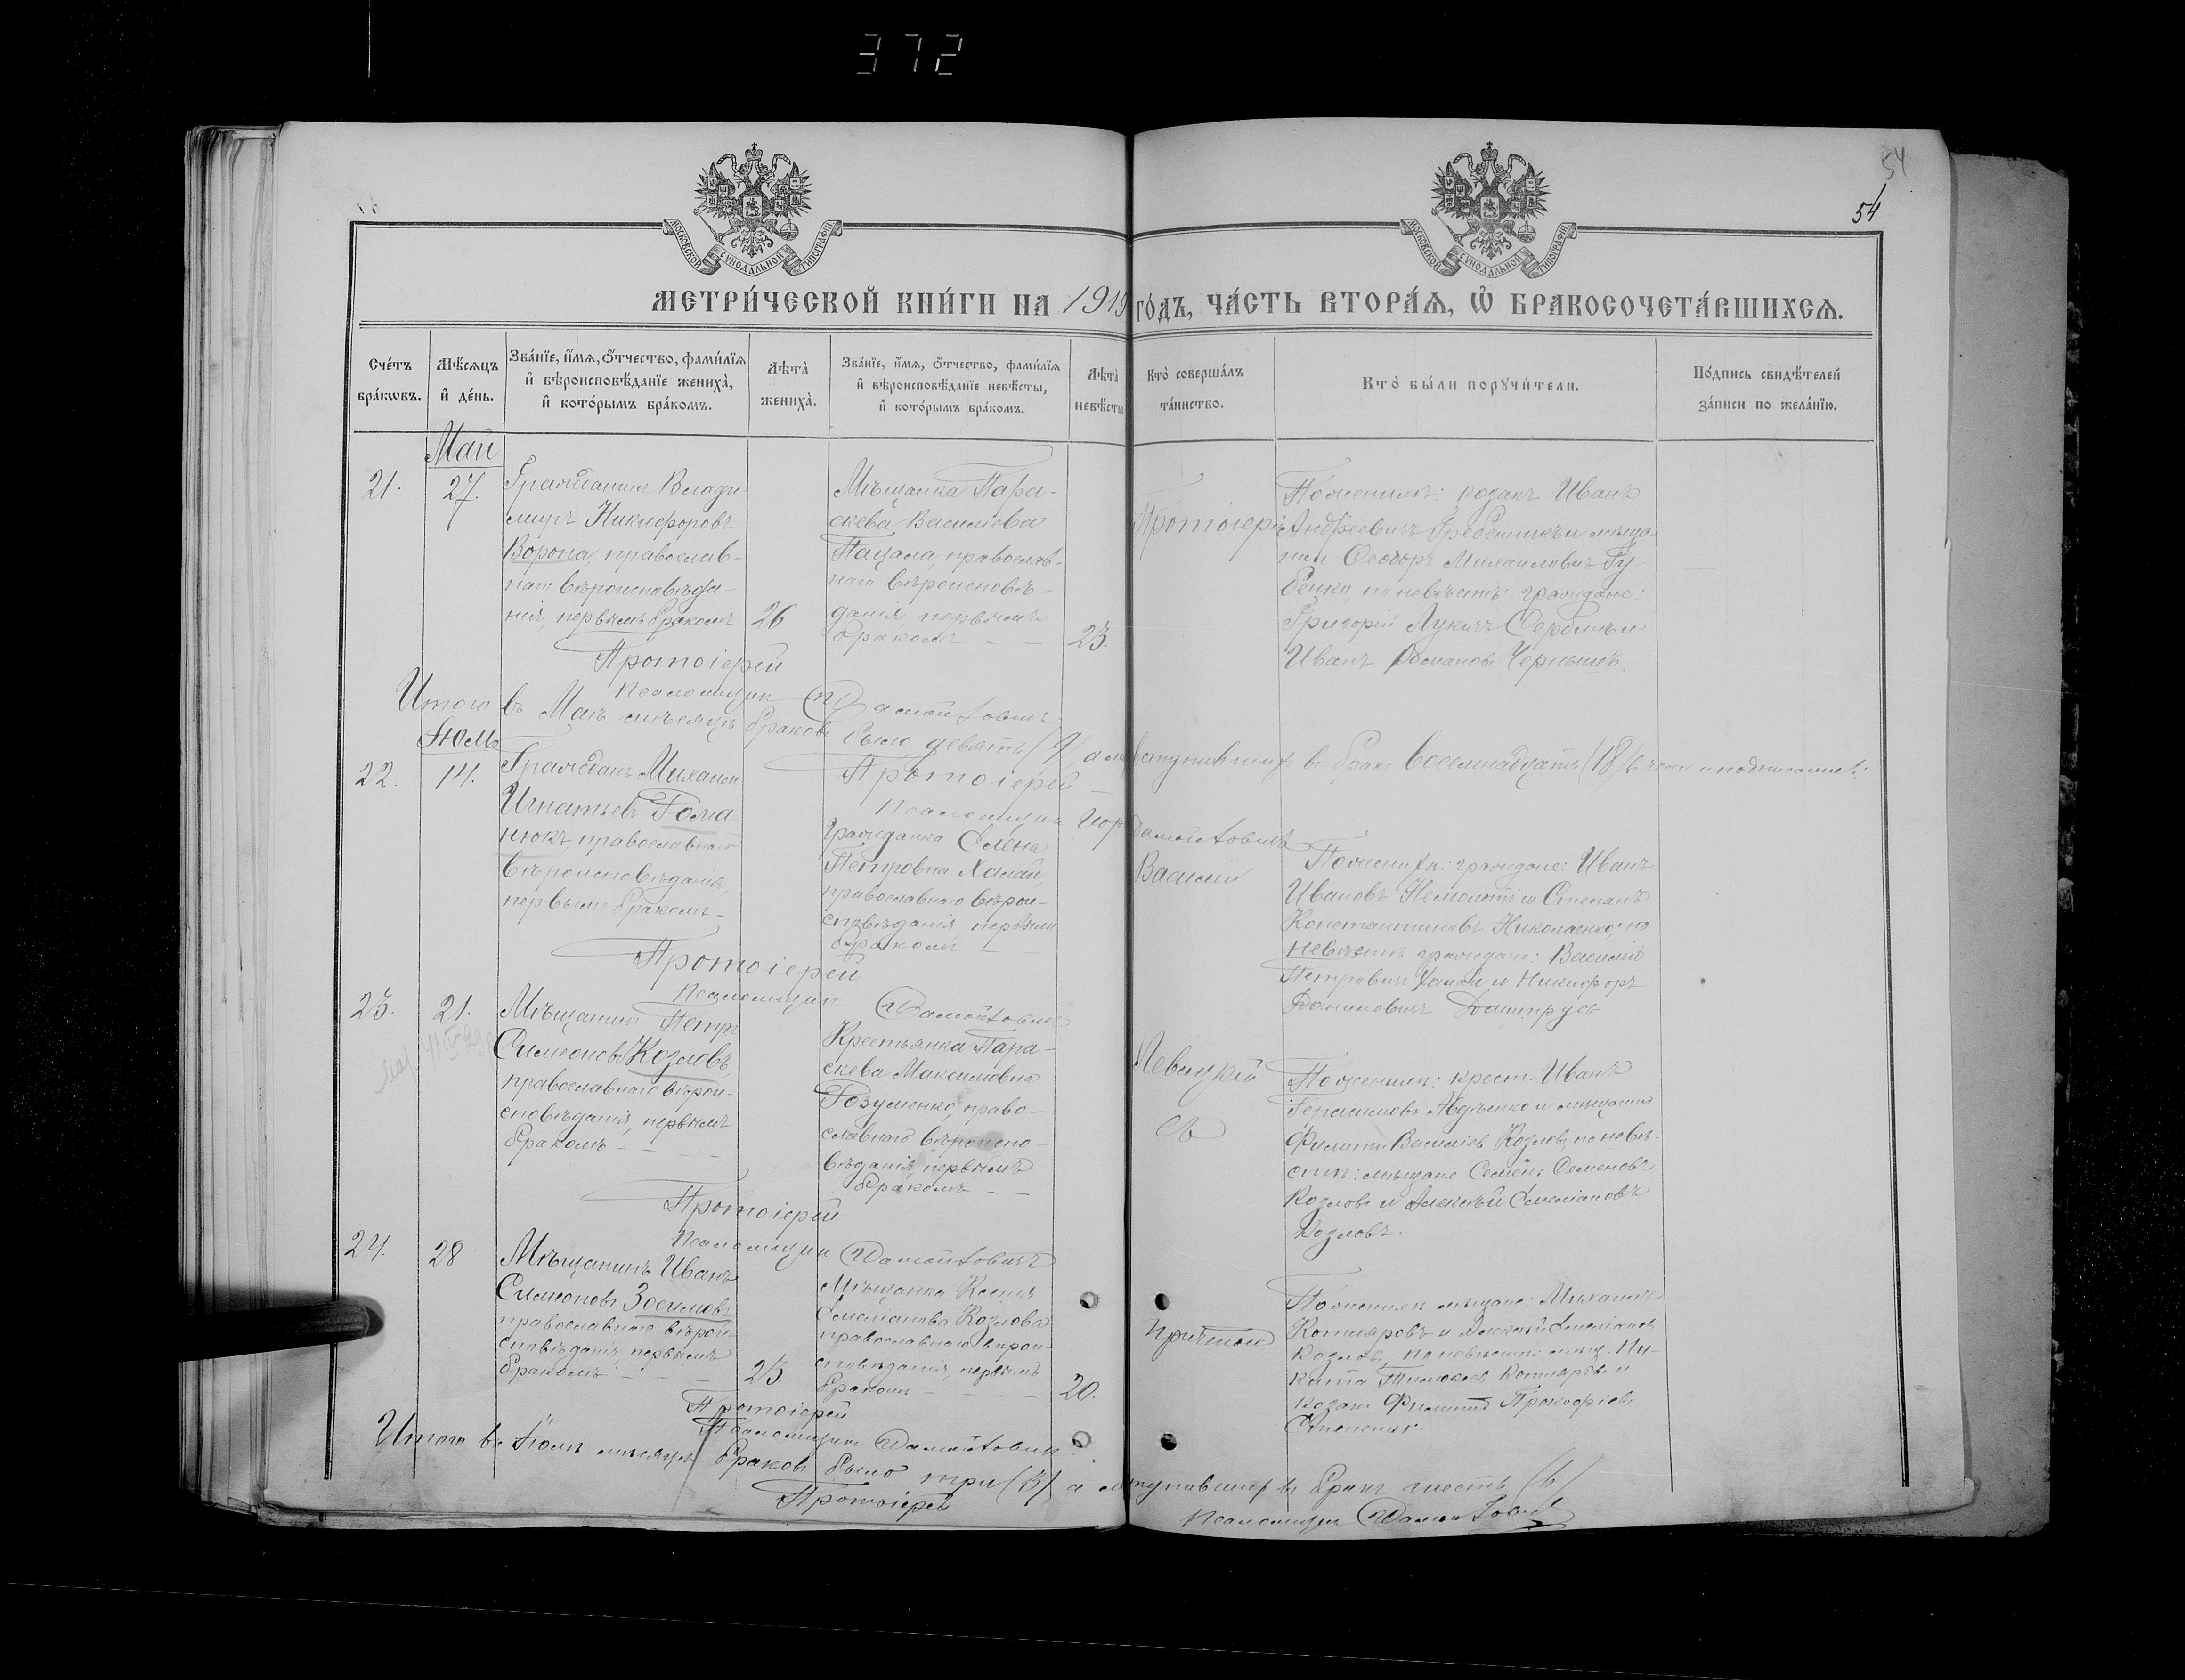 372
54
54
МОСКОВСКОЙ СѴНОДАЛЬНОЙ ТИПОГРАФІИ
МОСКОВСКОЙ СѴНОДАЛЬНОЙ ТИПОГРАФІИ
МЕТРИ́ЧЕСКОЙ КНИ́ГИ НА 1919 ГО́ДЪ, ЧА́СТЬ ВТОРА́Я, Ѡ҆ БРАКОСОЧЕТА́ВШИХСЯ.
Сче́тъ бра́кѡвъ.
Мѣ́сяцъ и҆ де́нь.
Зва́нїе, и҆́мя, ѻ҆́тчество, фами́лїя
и҆ вѣроисповѣ́данїе жениха̀,
и҆ кото́рымъ бра́комъ.
Лѣта̀ жениха̀.
Зва́нїе, и҆́мя, ѻ҆́тчество, фами́лїя
и҆ вѣроисповѣ́данїе невѣ́сты,
и҆ кото́рымъ бра́комъ.
Лѣта̀ невѣ́сты
Кто̀ соверша́лъ та́инство.
Кто̀ бы́ли порꙋчи́тели.
По́дпись свидѣ́телей
за́писи по жела́нїю.
Май
21.
27.
Гражданинъ Влади-
миръ Никифоровъ
Ворона, православ-
наго вѣроисповѣда-
нія, первымъ бракомъ
26
Мѣщанка Пара-
скева Василіева
Пацала, православ-
наго вѣроисповѣ-
данія, первымъ
бракомъ
23.
Протоіерей
По женихѣ: козакъ Иванъ
Андреевичъ Гребенникъ и мѣща-
нин Ѳеодоръ Михаиловичъ Гу-
бенко, по невѣстѣ: граждане:
Григорій Лукичъ Сербинъ и
Иванъ Романовъ Чернышъ.
Протоіерей
Псаломщик Дамаитовичъ
Итого въ Маѣ мѣсяцѣ браковъ было девять (9), а вступившихъ въ бракъ восемнадцать (18)
Протоіерей
Псаломщик
Іюль
22.
14.
Гражданъ Михаилъ
Игнатьевъ Рома-
нюкъ, православнаго
вѣроисповѣданія,
первымъ бракомъ
Гражданка Елена
Петровна Халай,
православнаго вѣрои-
сповѣданія, первымъ
бракомъ
Василій
По женихѣ: граждане: Иванъ
Ивановъ и Степанъ
Константиновъ Николаенко; по
невѣстѣ граждане: Василій
Петровичъ Халай и Никифоръ
Даниловичъ
Протоіерей
Псаломщик Дамаитовичъ
23.
21.
Мѣщанинъ Петръ
Симеоновъ Козловъ,
православнаго вѣрои-
сповѣданія, первымъ
бракомъ
Крестьянка Пара-
скева Максимовна
Розуменко, право-
славнаго вѣроиспо-
вѣданія, первымъ
бракомъ
Левицкій
съ
По женихѣ: крест. Иванъ
Герасимовъ Авдѣенко и мѣщанинъ
Филиппъ Василіевъ Козловъ, по невѣ-
стѣ: мѣщане Семенъ Семеновъ
Козловъ и Алексѣй Емеліановъ
Козловъ.
Протоіерей
Псаломщик Дамаитовичъ
24.
28
Мѣщанинъ Иванъ
Симеоновъ Зосимовъ,
православнаго вѣрои-
сповѣданія, первымъ
бракомъ
23.
Мѣщанка Ксенія
Емеліанова Козлова
православнаго вѣрои-
сповѣданія, первымъ
бракомъ
20.
причтомъ
По женихѣ мѣщане: Михаилъ
Котляровъ и Алексѣй Емеліановъ
Козловъ, по невѣстѣ: мѣщ. Ни-
кита Котляровъ и
козакъ Филиппъ Прокофіевъ
Протоіерей
Псаломщик Дамаитовичъ
Итого въ Іюлѣ мѣсяцѣ браковъ было три (3) а вступившихъ въ бракъ шесть (6)
Протоіерей
Псаломщик Дамаитовичъ